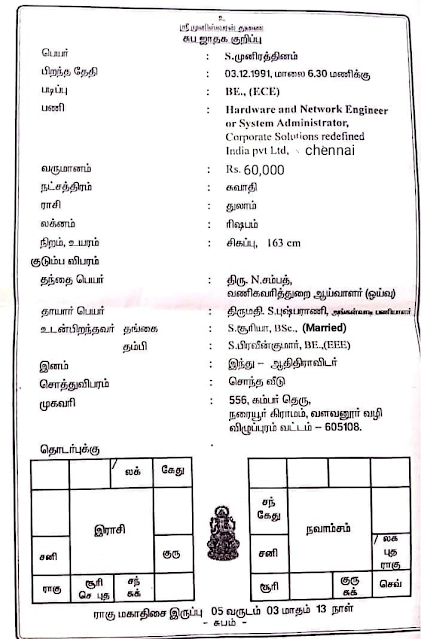 உ
ஸ்ரீ முனீஸ்வரன் துணை
சுப ஜாதக குறிப்பு
பெயர் : S.முனிரத்தினம்
பிறந்த தேதி : 03.12.1991, மாலை 6.30 மணிக்கு
படிப்பு : BE., (ECE)
பணி : Hardware and Network Engineer
or System Administrator,
Corporate Solutions redefined
India pvt Ltd, chennai
வருமானம் : Rs. 60,000
நட்சத்திரம் : சுவாதி
ராசி : துலாம்
லக்னம் : ரிஷபம்
நிறம், உயரம் : சிகப்பு, 163 cm
குடும்ப விபரம்
தந்தை பெயர் : திரு. N.சம்பத்,
வணிகவரித்துறை ஆய்வாளர் (ஓய்வு)
தாயார் பெயர் : திருமதி. S.புஷ்பராணி, அங்கன்வாடி பணியாளர்
உடன்பிறந்தவர் தங்கை : S.சூரியா, BSc., (Married)
தம்பி : S.பிரவீன்குமார், BE.,(EEE)
இனம் : இந்து – ஆதிதிராவிடர்
சொத்துவிபரம் : சொந்த வீடு
முகவரி : 556, கம்பர் தெரு,
நரையூர் கிராமம், வளவனூர் வழி
விழுப்புரம் வட்டம் – 605108.
தொடர்புக்கு
லக் கேது
இராசி
சனி குரு
ராகு சூரி செ புத சந் சுக்
சந் கேது
நவாம்சம்
சனி லக புத ராகு
சூரி குரு சுக் செவ்
ராகு மகாதிசை இருப்பு 05 வருடம் 03 மாதம் 13 நாள்
- சுபம் -